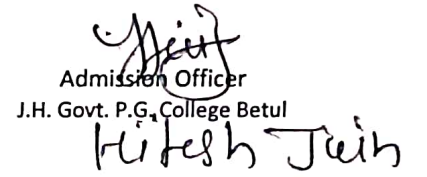 Admission Officer
J.H. Govt. P.G. College Betul
Hitesh Jain